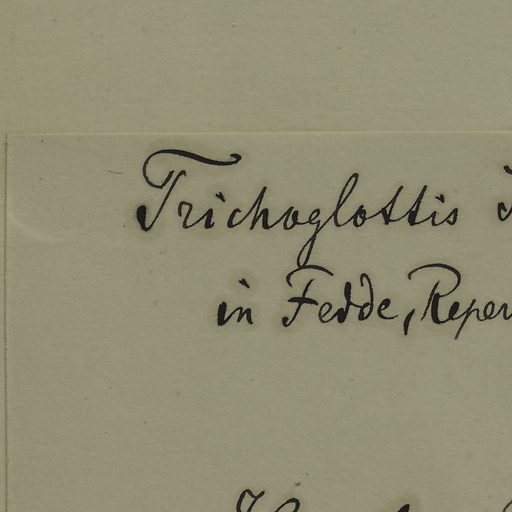 Trichoglottis
in Fedde, Reper